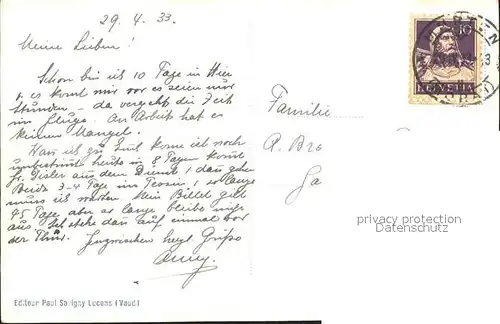 29. 4. 33.
Meine Lieben!
Schon bin ich 10 Tage in Hier
u. es komt mir vor es seien nur
Stunden – da vergeht die Zeit
im Fluge. An Arbeit hat es
keinen Mangel.
Wan ich zu Euch kome ist noch
unbestimt heute in 8 Tagen komt
Fr. Gisler aus dem Dienst, dan gehen
Beide 3-4 Tage ins Tessin, so lange
muss ich warten. Mein Billet gilt
45 Tage aber so lange bleibe nicht
aus. Ich stehe dan auf einmal vor
der Thür. Inzwischen herzl. Grüsse
Anny.
Familie
A. Bro
Ga
10
HELVETIA
privacy protection
Datenschutz
Editeur Paul Savigny Lucens (Vaud)